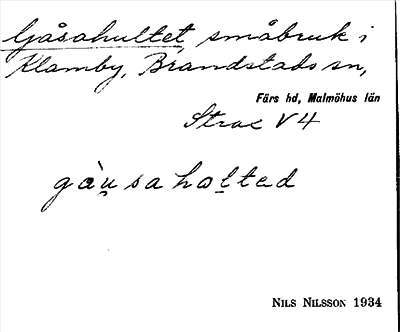 Gåsahultet, småbruk i
Klamby, Brandstads sn,
Färs hd, Malmöhus län
V4
gàu̯sahol̯ted
NILS NILSSON 1934